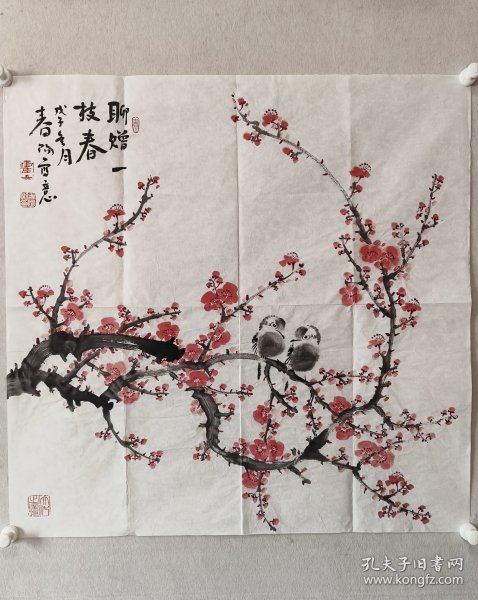 聊赠一
枝春
戊子冬月
春阳写意
孔夫子旧书网
www.kongfz.com